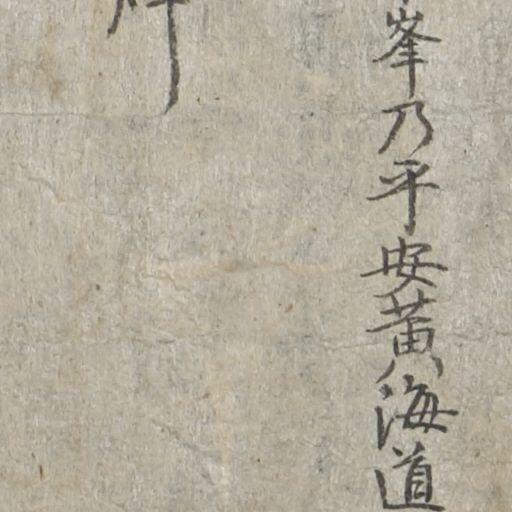 峯乃平安黃海道